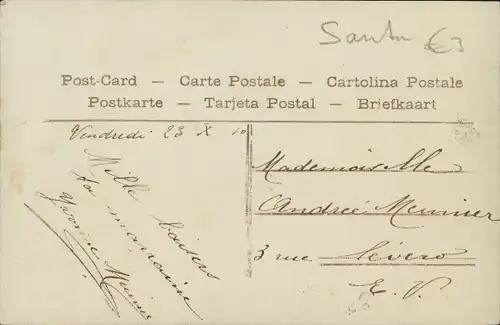 Santa €3
Post-Card — Carte Postale — Cartolina Postale
Postkarte — Tarjeta Postal — Briefkaart
Vendredi 23 X 10
Mille baisers
ta marraine
Yvonne Meunier
Mademoiselle
Andrée Meunier
3 rue Sévero
E. V.